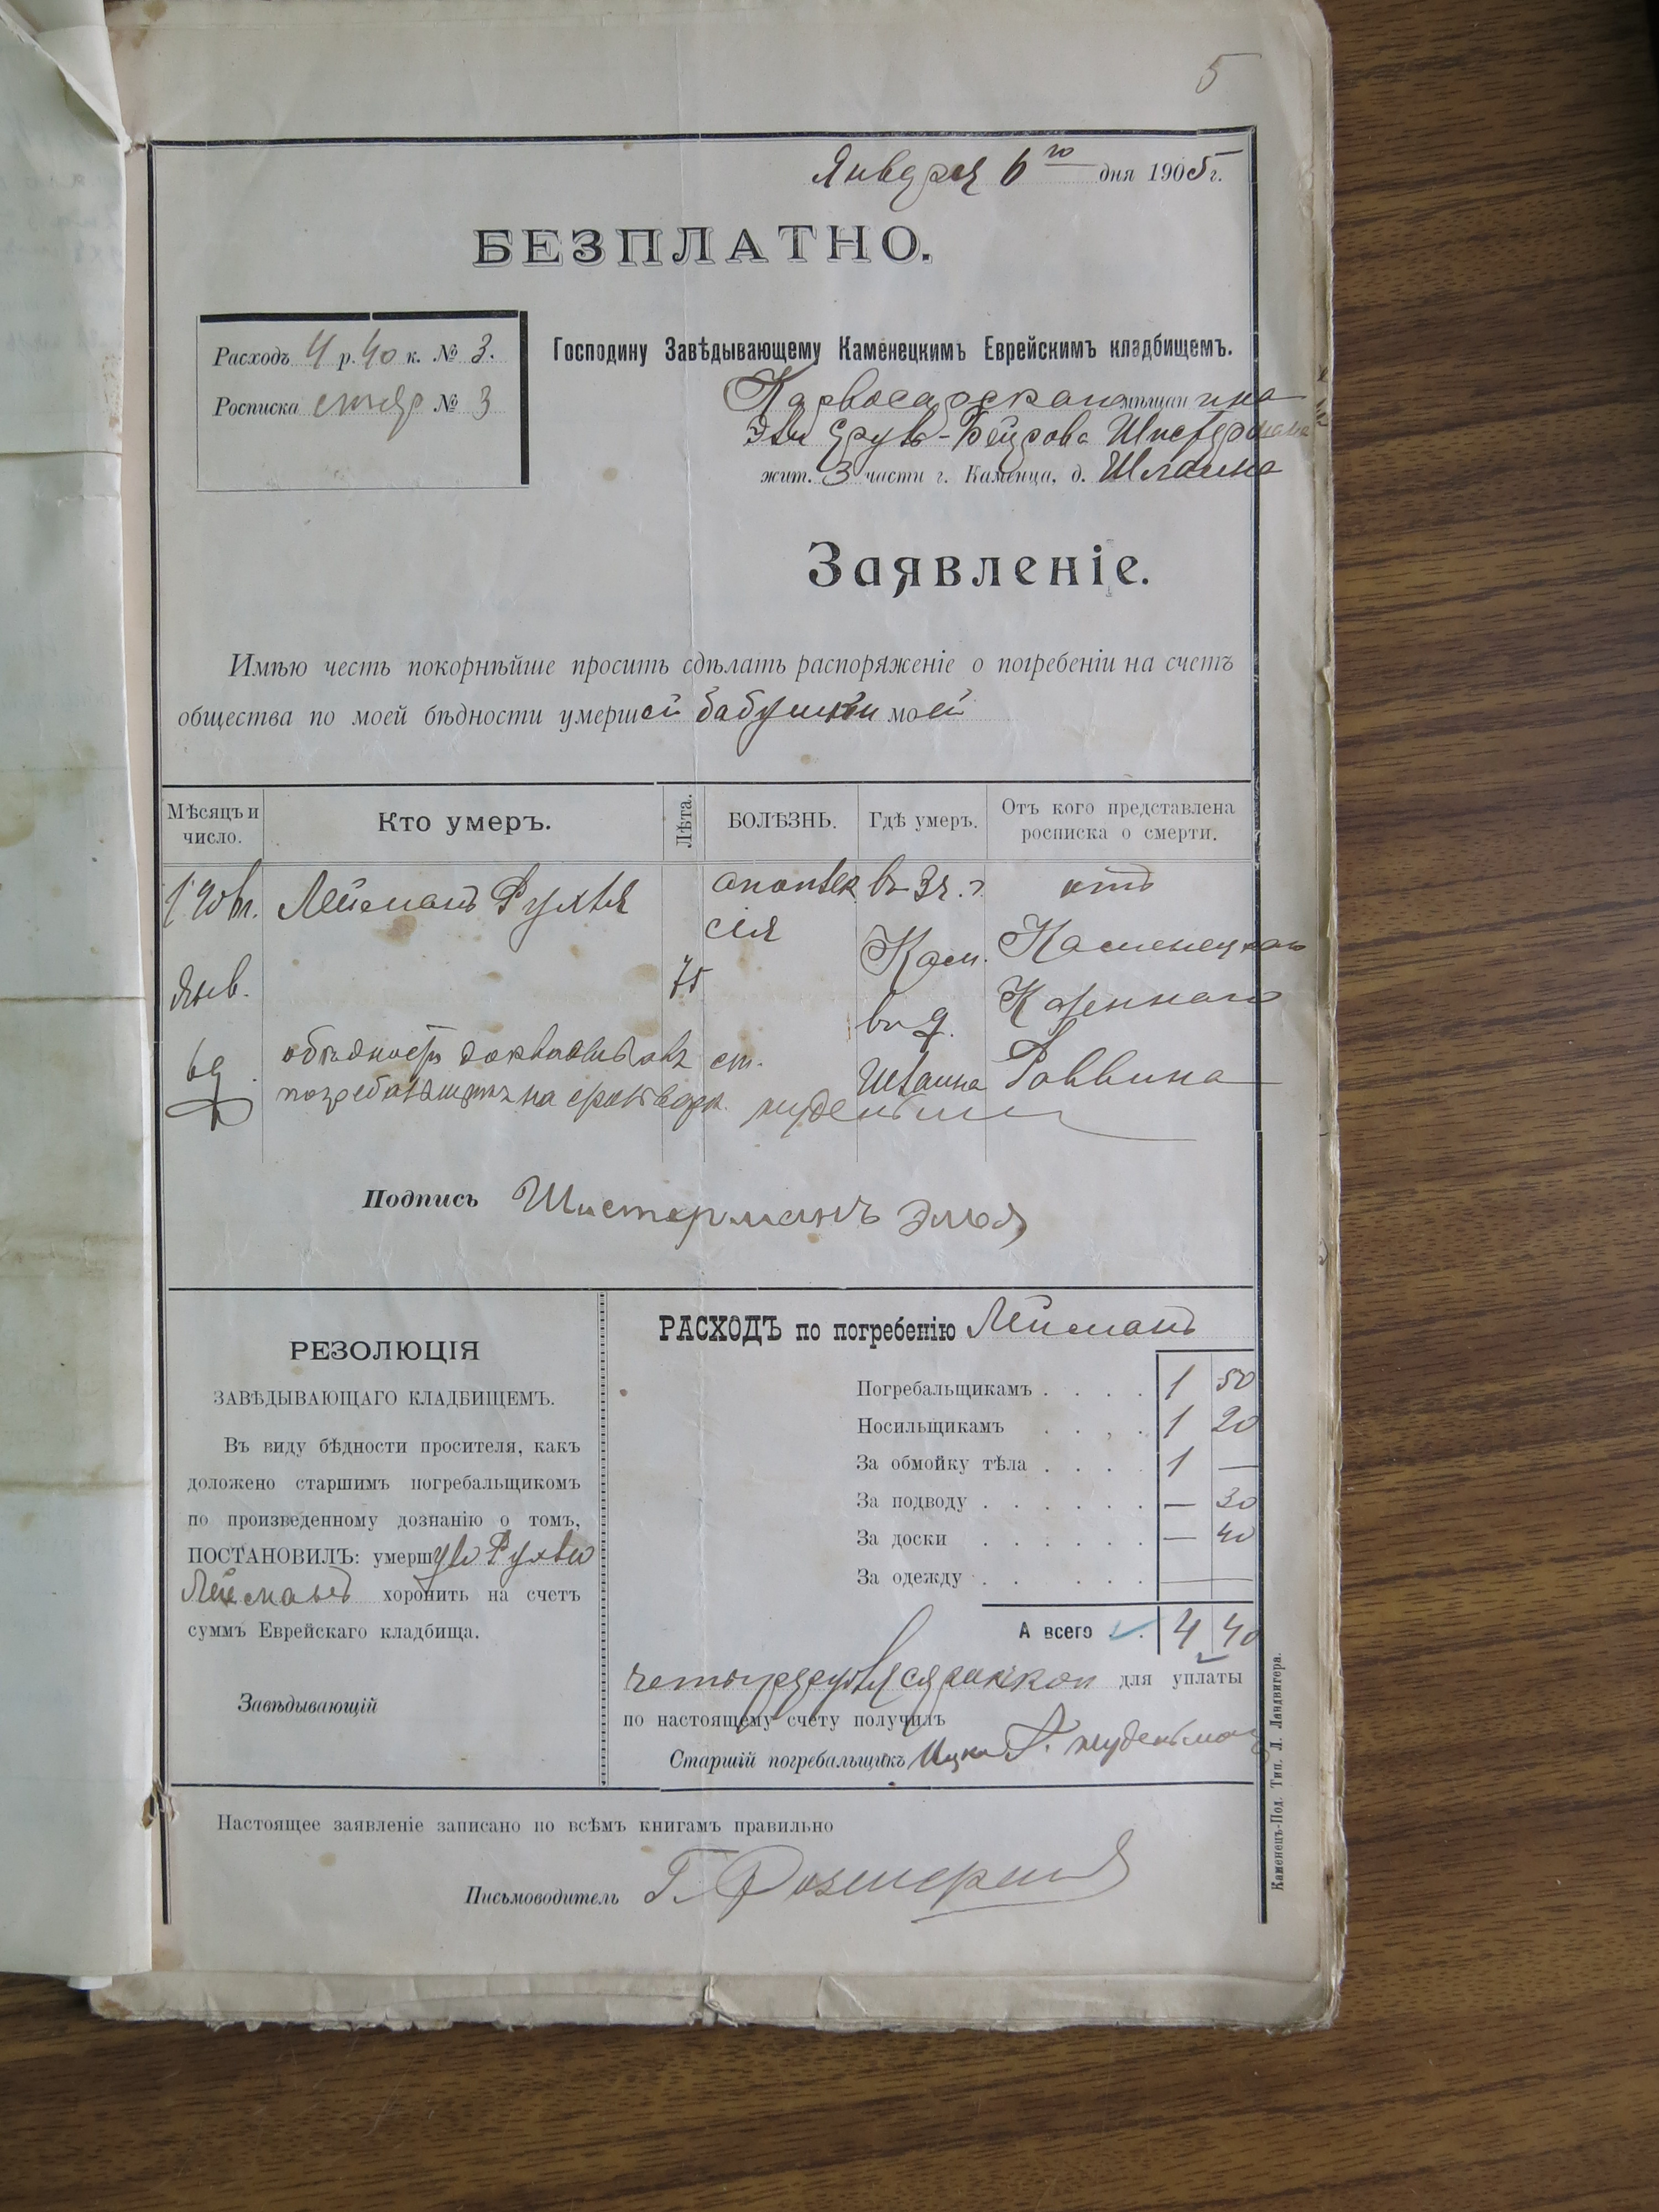 5
Января 6го дня 1905 г.
БЕЗПЛАТНО.
Расходъ 4 р. 40 к. № 3.
Росписка № 3
Господину Завѣдывающему Каменецкимъ Еврейскимъ кладбищемъ.
мѣщанина
жит. 3 части г. Каменца, д.
Заявленіе.
Имѣю честь покорнѣйше просить сдѣлать распоряженіе о погребеніи на счетъ
общества по моей бѣдности умершей бабушки моей
Мѣсяцъ и число.
Кто умеръ.
Лѣта.
БОЛѢЗНЬ.
Гдѣ умеръ.
Отъ кого представлена росписка о смерти.
Лейманъ Рухля
въ 3 ч. г.
отъ
Кам.
Каменецкаго
Янв.
75
въ д.
Казеннаго
Раввина
Подпись Шистерманъ
РЕЗОЛЮЦІЯ
ЗАВѢДЫВАЮЩАГО КЛАДБИЩЕМЪ.
Въ виду бѣдности просителя, какъ
доложено старшимъ погребальщикомъ
по произведенному дознанію о томъ,
ПОСТАНОВИЛЪ: умершую Рухлю
Лейманъ хоронить на счетъ
суммъ Еврейскаго кладбища.
Завѣдывающій
РАСХОДЪ по погребенію Лейманъ
Погребальщикамъ . . . . 1 50
Носильщикамъ . . . . 1 20
За обмойку тѣла . . . . 1 —
За подводу . . . . . . — 30
За доски . . . . . . — 40
За одежду . . . . . — —
А всего . . 4 40
для уплаты
по настоящему счету получилъ
Старшій погребальщикъ
Настоящее заявленіе записано по всѣмъ книгамъ правильно
Письмоводитель Г.
Каменецъ-Под. Тип. Л. Ландвигера.